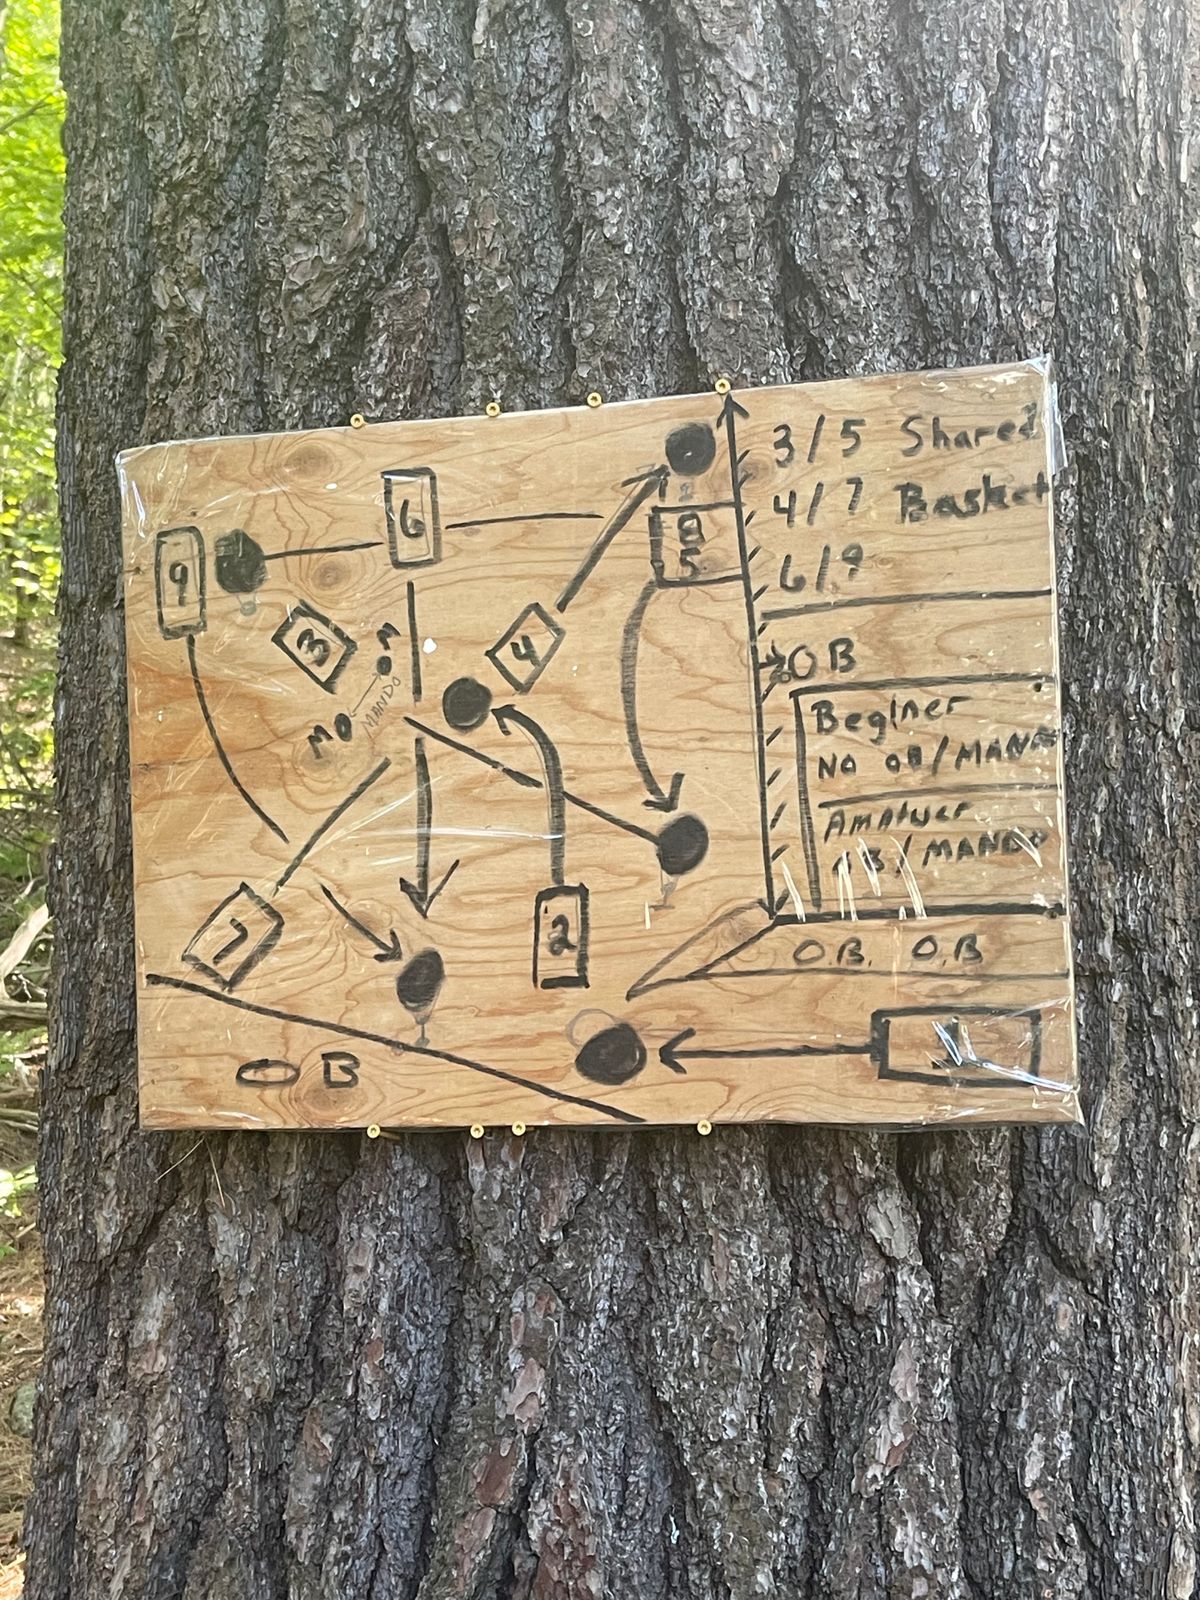 3/5 Shared
4/7 Basket
6/9
6
8
5
9
3
4
M
MANDO
M
OB
Beginer
NO OB/MANDO
Amatuer
OB/MANDO
7
2
O.B. O.B
OB
1